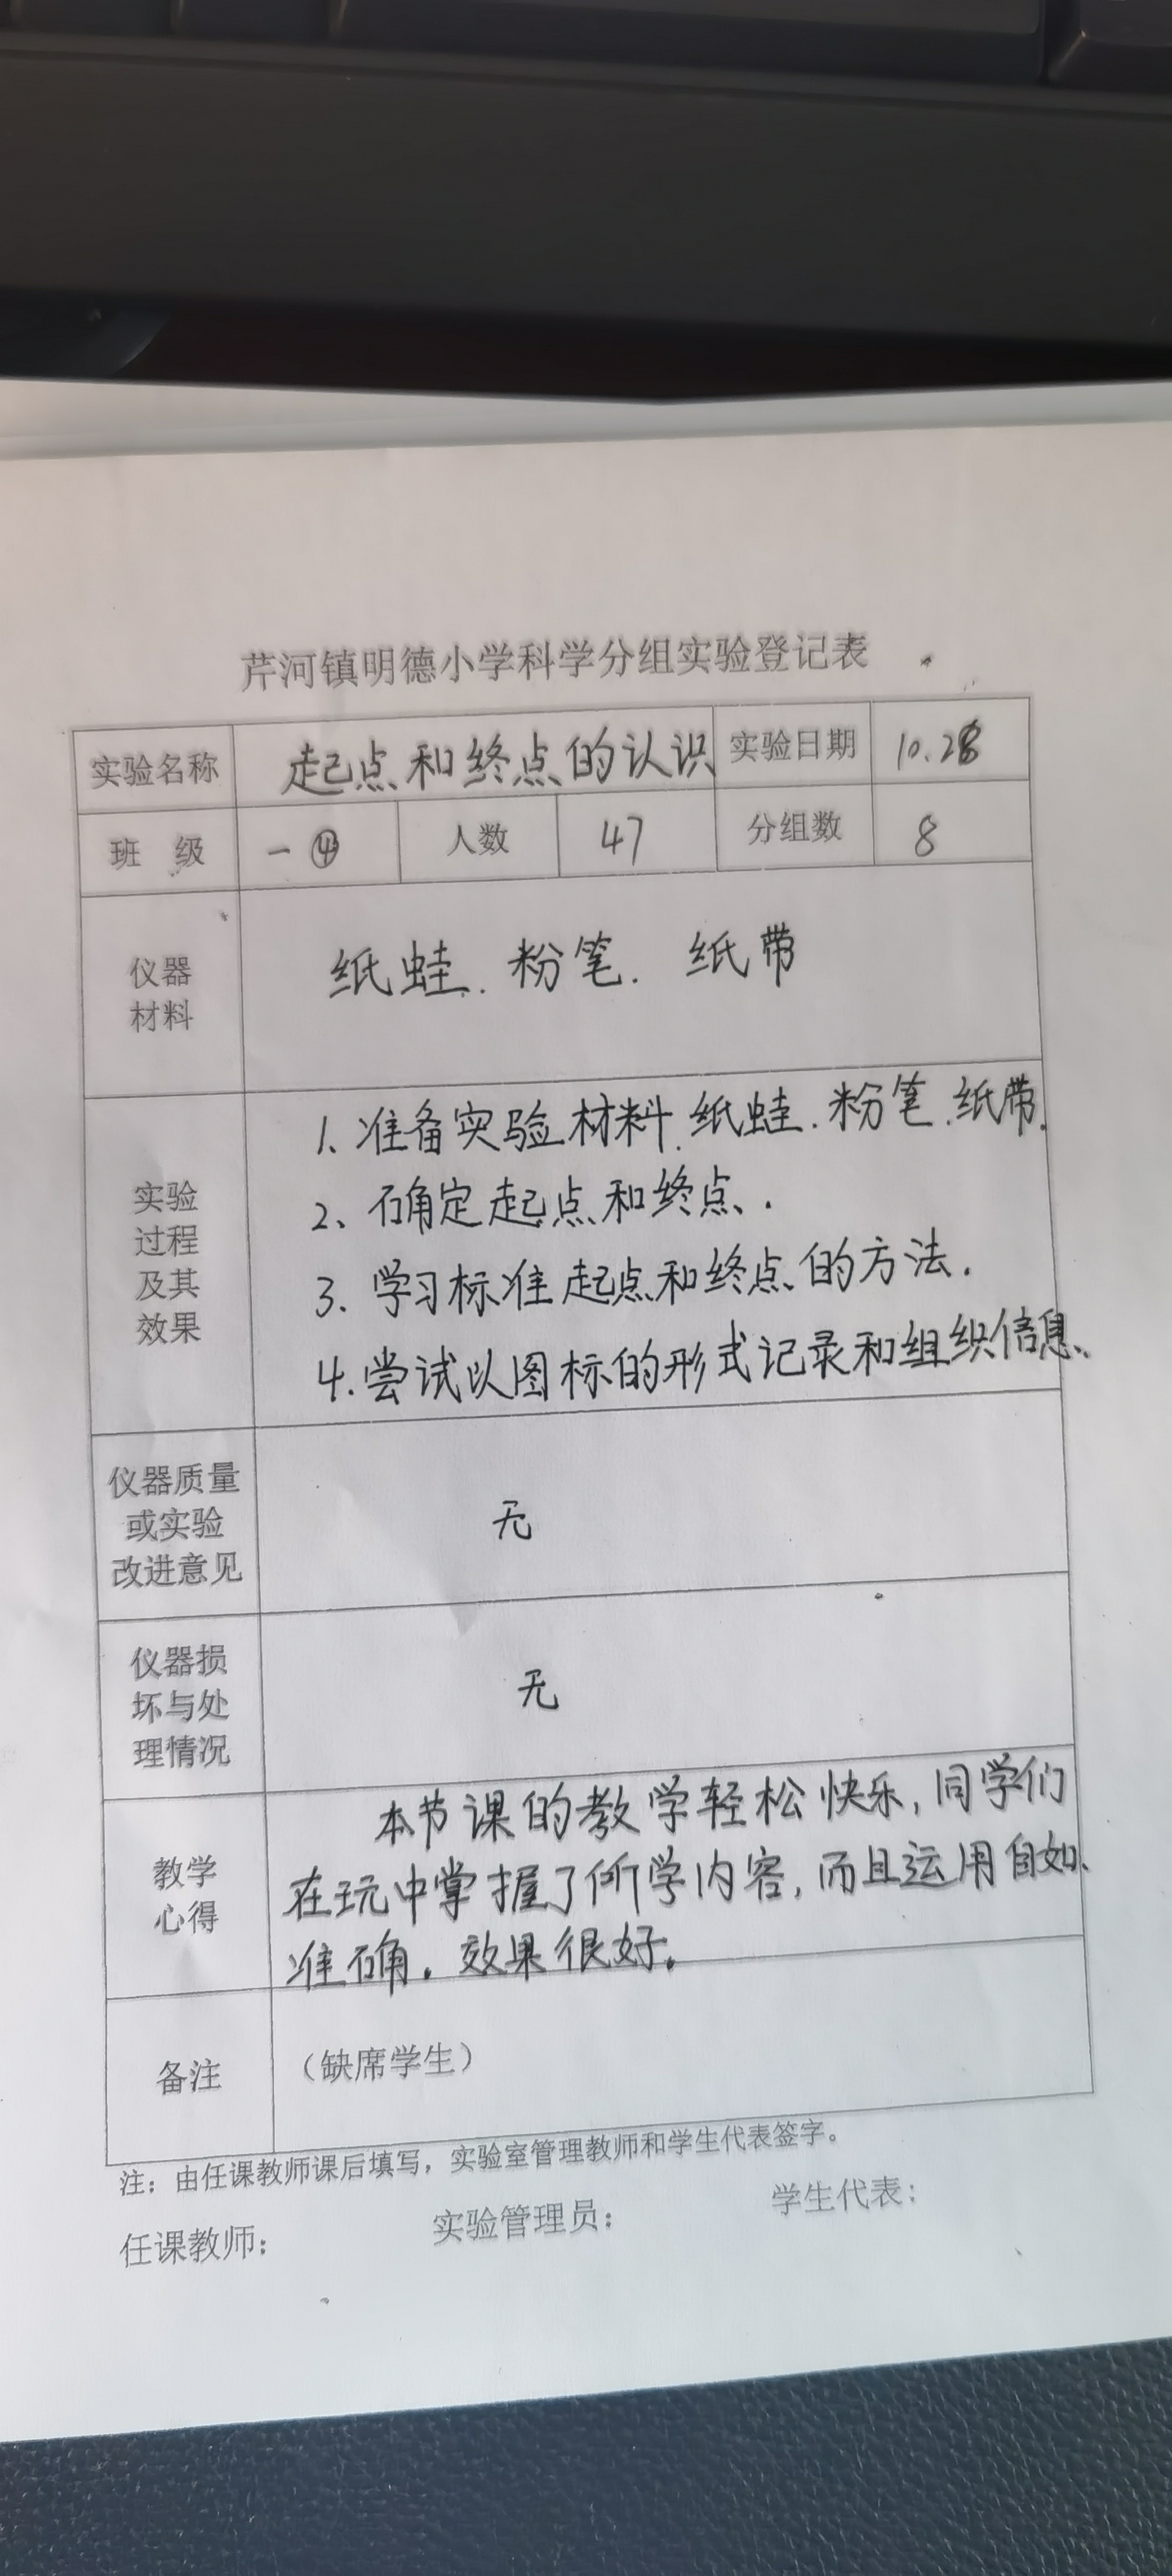 芹河镇明德小学科学分组实验登记表
实验名称 起点和终点的认识 实验日期 10.28
班 级 一④ 人数 47 分组数 8
仪器
材料
纸蛙.粉笔.纸带
实验
过程
及其
效果
1.准备实验材料.纸蛙.粉笔.纸带.
2、确定起点和终点.
3、学习标准起点和终点的方法.
4.尝试以图标的形式记录和组织信息、
仪器质量
或实验
改进意见
无
仪器损
坏与处
理情况
无
教学
心得
本节课的教学轻松快乐,同学们
在玩中掌握了所学内容,而且运用自如、
准确。效果很好。
备注 (缺席学生)
注:由任课教师课后填写,实验室管理教师和学生代表签字。
任课教师: 实验管理员: 学生代表: